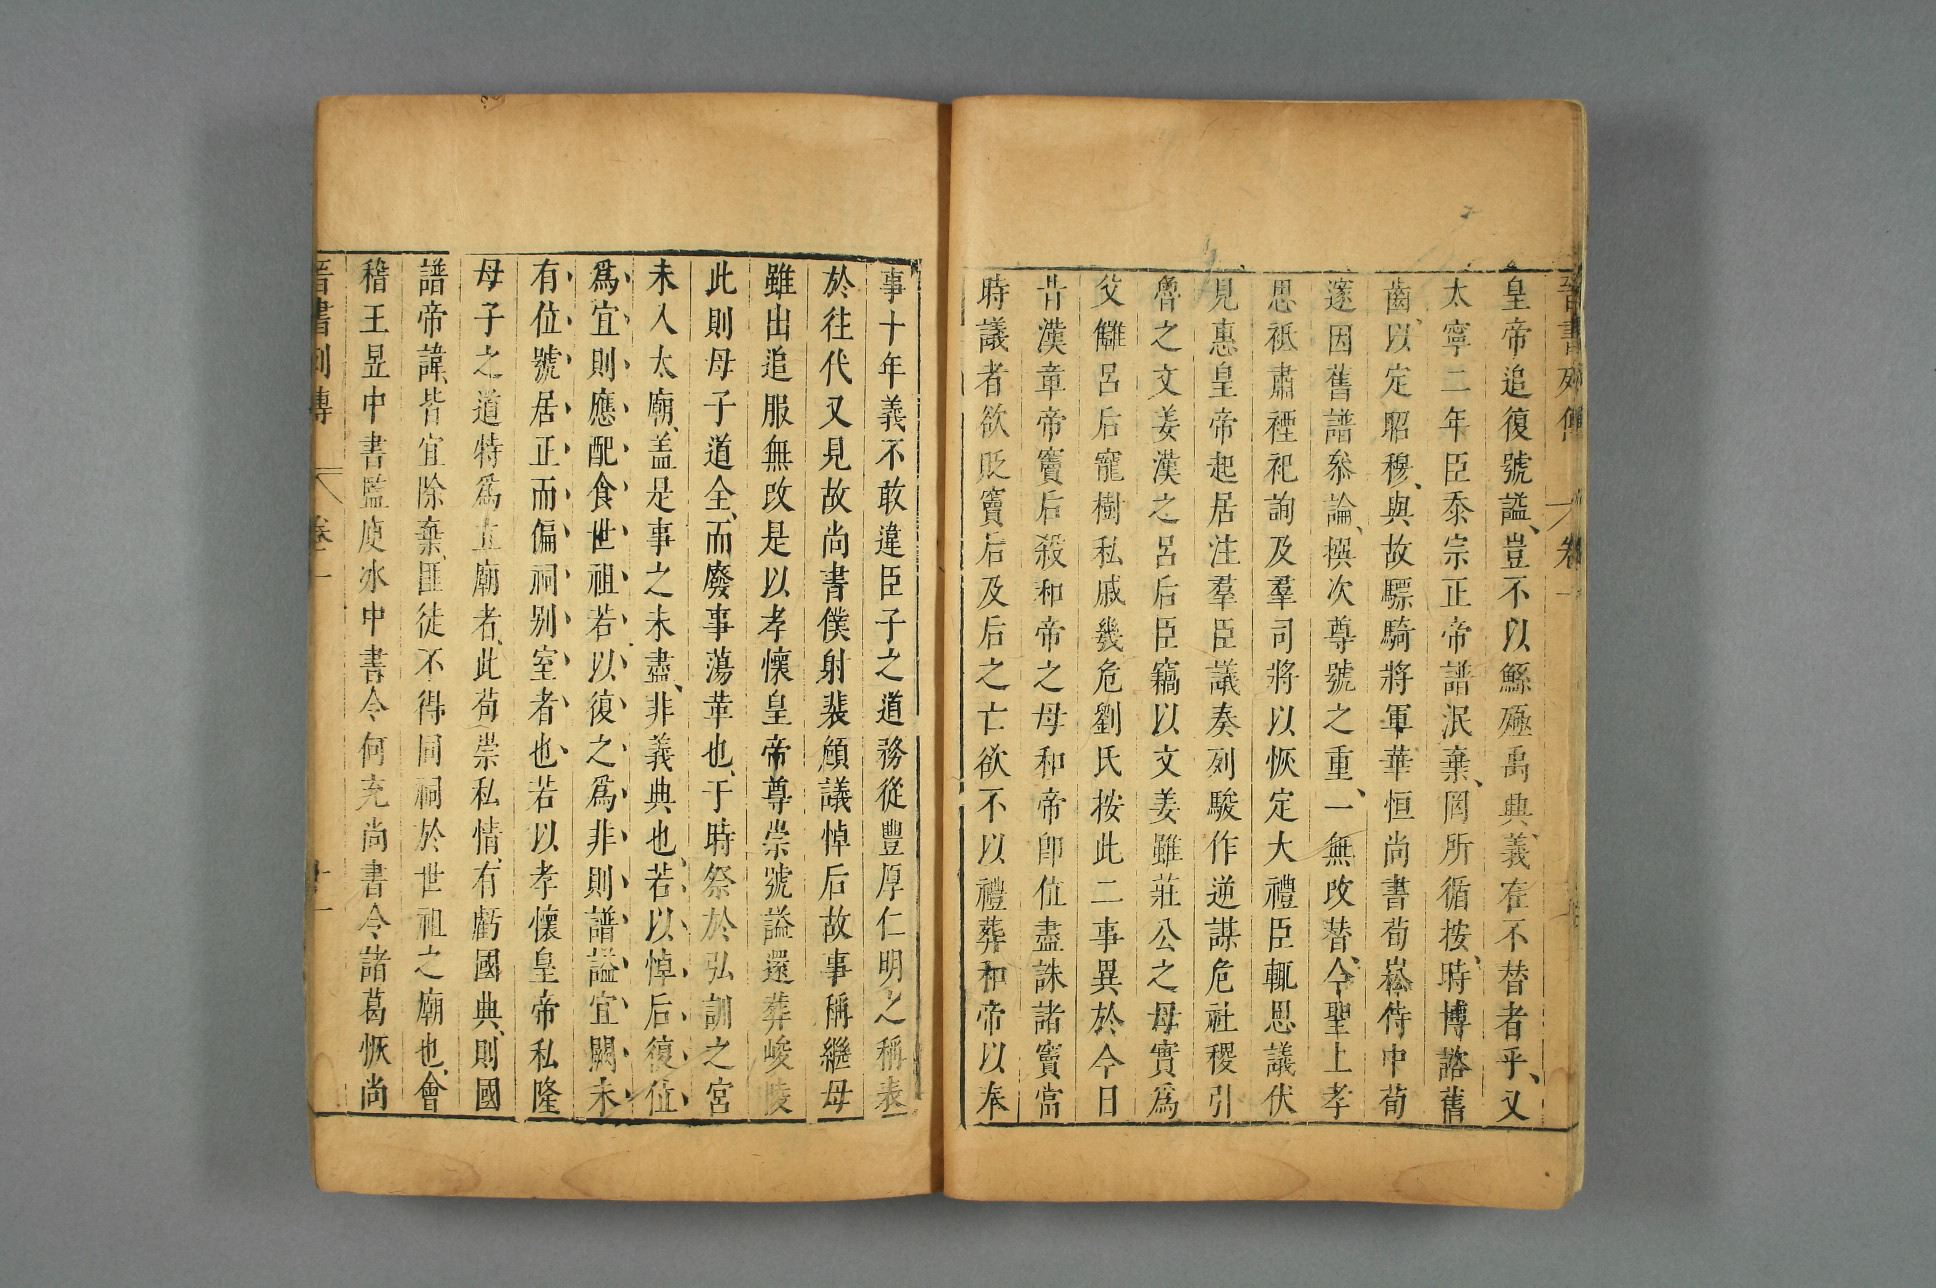 晉書列傳 卷一
皇帝追復號諡豈不以鯀殛禹興義在不替者乎又
太寧二年臣忝宗正帝譜泯棄罔所循按時博諮舊
齒以定昭穆與故驃騎將軍華恒尚書荀崧侍中荀
邃因舊譜參論撰次尊號之重一無改替今聖上孝
思祗肅禋祀詢及羣司將以恢定大禮臣輒思議伏
見惠皇帝起居注羣臣議奏列駿作逆謀危社稷引
魯之文姜漢之呂后臣竊以文姜雖莊公之母實爲
父讎呂后寵樹私戚幾危劉氏按此二事異於今日
昔漢章帝竇后殺和帝之母和帝卽位盡誅諸竇當
時議者欲貶竇后及后之亡欲不以禮葬和帝以奉
事十年義不敢違臣子之道務從豐厚仁明之稱表
於往代又見故尚書僕射裴頠議悼后故事稱繼母
雖出追服無改是以孝懷皇帝尊崇號謚還葬峻陵
此則母子道全而廢事蕩革也于時祭於弘訓之宮
未入太廟盖是事之未盡非義典也若以悼后復位
爲宜則應配食世祖若以復之爲非則譜謚宜闕未
有位號居正而偏祠別室者也若以孝懷皇帝私隆
母子之道特爲立廟者此苟崇私情有虧國典則國
譜帝諱皆宜除棄匪徒不得同祠於世祖之廟也會
稽王昱中書監庾冰中書令何充尚書令諸葛恢尚
晉書列傳 卷一 十一